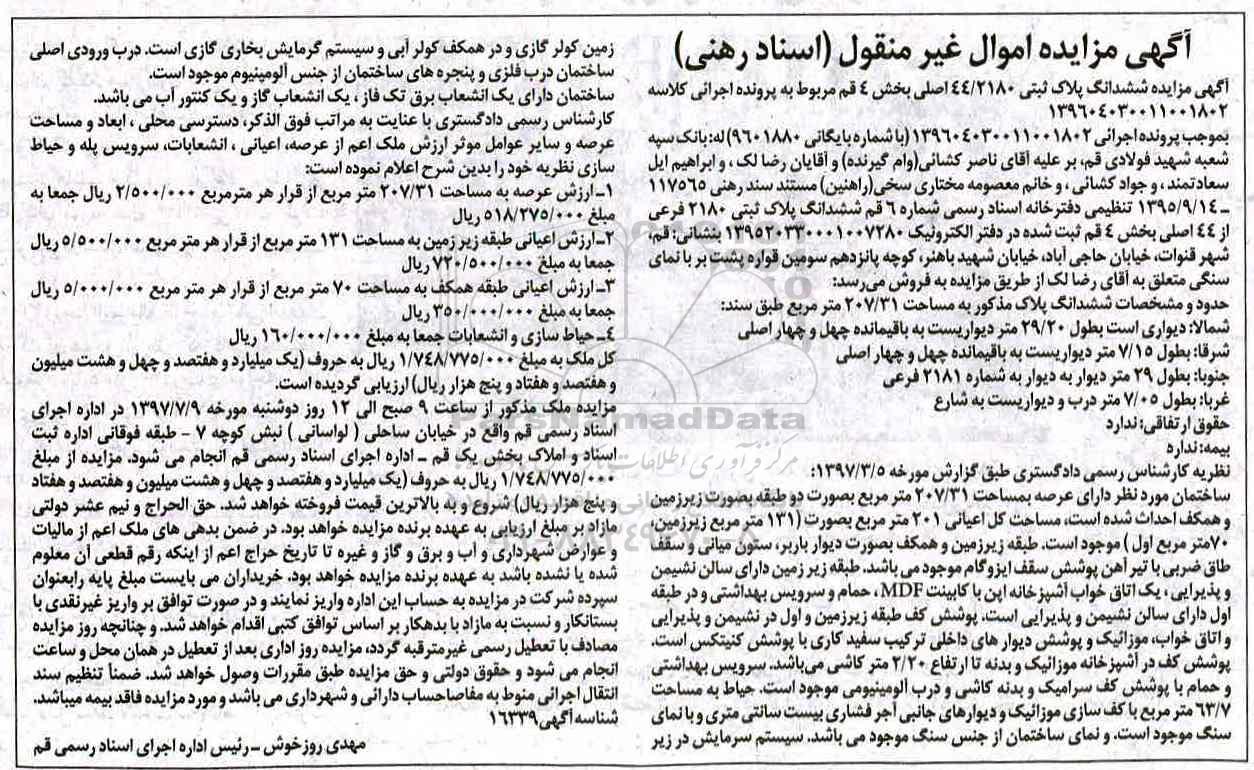 آگهی مزایده اموال غیر منقول (اسناد رهنی)
آگهی مزایده ششدانگ پلاک ثبتی ٤٤/٢١٨٠ اصلی بخش ٤ قم مربوط به پرونده اجرائی کلاسه
١٣٩٦٠٤٠٣٠٠١١٠٠١٨٠٢
بموجب پرونده اجرائی ١٣٩٦٠٤٠٣٠٠١١٠٠١٨٠٢ (با شماره بایگانی ٩٦٠١٨٨٠) له: بانک سپه
شعبه شهید فولادی قم، بر علیه آقای ناصر کشائی(وام گیرنده) و آقایان رضا لک ، و ابراهیم ایل
سعادتمند ، و جواد کشائی ، و خانم معصومه مختاری سخی(راهنین) مستند سند رهنی ١١٧٥٦٥
ـ ١٣٩٥/٩/١٤ تنظیمی دفترخانه اسناد رسمی شماره ٦ قم ششدانگ پلاک ثبتی ٢١٨٠ فرعی
از ٤٤ اصلی بخش ٤ قم ثبت شده در دفتر الکترونیک ١٣٩٥٢٠٣٣٠٠٠١٠٠٧٢٨٠ بنشانی: قم،
شهر قنوات، خیابان حاجی آباد، خیابان شهید باهنر، کوچه پانزدهم سومین قواره پشت بر با نمای
سنگی متعلق به آقای رضا لک از طریق مزایده به فروش می‌رسد:
حدود و مشخصات ششدانگ پلاک مذکور به مساحت ٢٠٧/٣١ متر مربع طبق سند:
شمالا: دیواری است بطول ٢٩/٢٠ متر دیواریست به باقیمانده چهل و چهار اصلی
شرقا: بطول ٧/١٥ متر دیواریست به باقیمانده چهل و چهار اصلی
جنوبا: بطول ٢٩ متر دیوار به دیوار به شماره ٢١٨١ فرعی
غربا: بطول ٧/٠٥ متر درب و دیواریست به شارع
حقوق ارتفاقی: ندارد
بیمه: ندارد
نظریه کارشناس رسمی دادگستری طبق گزارش مورخه ١٣٩٧/٣/٥:
ساختمان مورد نظر دارای عرصه بمساحت ٢٠٧/٣١ متر مربع بصورت دو طبقه بصورت زیرزمین
و همکف احداث شده است، مساحت کل اعیانی ٢٠١ متر مربع بصورت (١٣١ متر مربع زیرزمین،
٧٠متر مربع اول ) موجود است. طبقه زیرزمین و همکف بصورت دیوار باربر، ستون میانی و سقف
طاق ضربی با تیر آهن پوشش سقف ایزوگام موجود می باشد. طبقه زیر زمین دارای سالن نشیمن
و پذیرایی ، یک اتاق خواب آشپزخانه اپن با کابینت MDF ، حمام و سرویس بهداشتی و در طبقه
اول دارای سالن نشیمن و پذیرایی است. پوشش کف طبقه زیرزمین و اول در نشیمن و پذیرایی
و اتاق خواب، موزائیک و پوشش دیوار های داخلی ترکیب سفید کاری با پوشش کنیتکس است.
پوشش کف در آشپزخانه موزائیک و بدنه تا ارتفاع ٢/٢٠ متر کاشی می‌باشد. سرویس بهداشتی
و حمام با پوشش کف سرامیک و بدنه کاشی و درب آلومینیومی موجود است. حیاط به مساحت
٦٣/٧ متر مربع با کف سازی موزائیک و دیوارهای جانبی آجر فشاری بیست سانتی متری و با نمای
سنگ موجود است. و نمای ساختمان از جنس سنگ موجود می باشد. سیستم سرمایش در زیر
زمین کولر گازی و در همکف کولر آبی و سیستم گرمایش بخاری گازی است. درب ورودی اصلی
ساختمان درب فلزی و پنجره های ساختمان از جنس آلومینیوم موجود است.
ساختمان دارای یک انشعاب برق تک فاز ، یک انشعاب گاز و یک کنتور آب می باشد.
کارشناس رسمی دادگستری با عنایت به مراتب فوق الذکر، دسترسی محلی ، ابعاد و مساحت
عرصه و سایر عوامل موثر ارزش ملک اعم از عرصه، اعیانی ، انشعابات، سرویس پله و حیاط
سازی نظریه خود را بدین شرح اعلام نموده است:
١ـ ارزش عرصه به مساحت ٢٠٧/٣١ متر مربع از قرار هر مترمربع ٢/٥٠٠/٠٠٠ ریال جمعا به
مبلغ ٥١٨/٢٧٥/٠٠٠ ریال
٢ـ ارزش اعیانی طبقه زیر زمین به مساحت ١٣١ متر مربع از قرار هر متر مربع ٥/٥٠٠/٠٠٠ ریال
جمعا به مبلغ ٧٢٠/٥٠٠/٠٠٠ ریال
٣ـ ارزش اعیانی طبقه همکف به مساحت ٧٠ متر مربع از قرار هر متر مربع ٥/٠٠٠/٠٠٠ ریال
جمعا به مبلغ ٣٥٠/٠٠٠/٠٠٠ ریال
٤ـ حیاط سازی و انشعابات جمعا به مبلغ ١٦٠/٠٠٠/٠٠٠ ریال
کل ملک به مبلغ ١/٧٤٨/٧٧٥/٠٠٠ ریال به حروف (یک میلیارد و هفتصد و چهل و هشت میلیون
و هفتصد و هفتاد و پنج هزار ریال) ارزیابی گردیده است.
مزایده ملک مذکور از ساعت ٩ صبح الی ١٢ روز دوشنبه مورخه ١٣٩٧/٧/٩ در اداره اجرای
اسناد رسمی قم واقع در خیابان ساحلی ( لواسانی ) نبش کوچه ٧ - طبقه فوقانی اداره ثبت
اسناد و املاک بخش یک قم ـ اداره اجرای اسناد رسمی قم انجام می شود. مزایده از مبلغ
١/٧٤٨/٧٧٥/٠٠٠ ریال به حروف (یک میلیارد و هفتصد و چهل و هشت میلیون و هفتصد و هفتاد
و پنج هزار ریال) شروع و به بالاترین قیمت فروخته خواهد شد. حق الحراج و نیم عشر دولتی
مازاد بر مبلغ ارزیابی به عهده برنده مزایده خواهد بود. در ضمن بدهی های ملک اعم از مالیات
و عوارض شهرداری و آب و برق و گاز و غیره تا تاریخ حراج اعم از اینکه رقم قطعی آن معلوم
شده یا نشده باشد به عهده برنده مزایده خواهد بود. خریداران می بایست مبلغ پایه رابعنوان
سپرده شرکت در مزایده به حساب این اداره واریز نمایند و در صورت توافق بر واریز غیرنقدی با
بستانکار و نسبت به مازاد با بدهکار بر اساس توافق کتبی اقدام خواهد شد. و چنانچه روز مزایده
مصادف با تعطیل رسمی غیرمترقبه گردد، مزایده روز اداری بعد از تعطیل در همان محل و ساعت
انجام می شود و حقوق دولتی و حق مزایده طبق مقررات وصول خواهد شد. ضمناً تنظیم سند
انتقال اجرائی منوط به مفاصاحساب دارائی و شهرداری می باشد و مورد مزایده فاقد بیمه میباشد.
شناسه آگهی ١٦٣٣٩
مهدی روزخوش ـ رئیس اداره اجرای اسناد رسمی قم
ParsNamadData